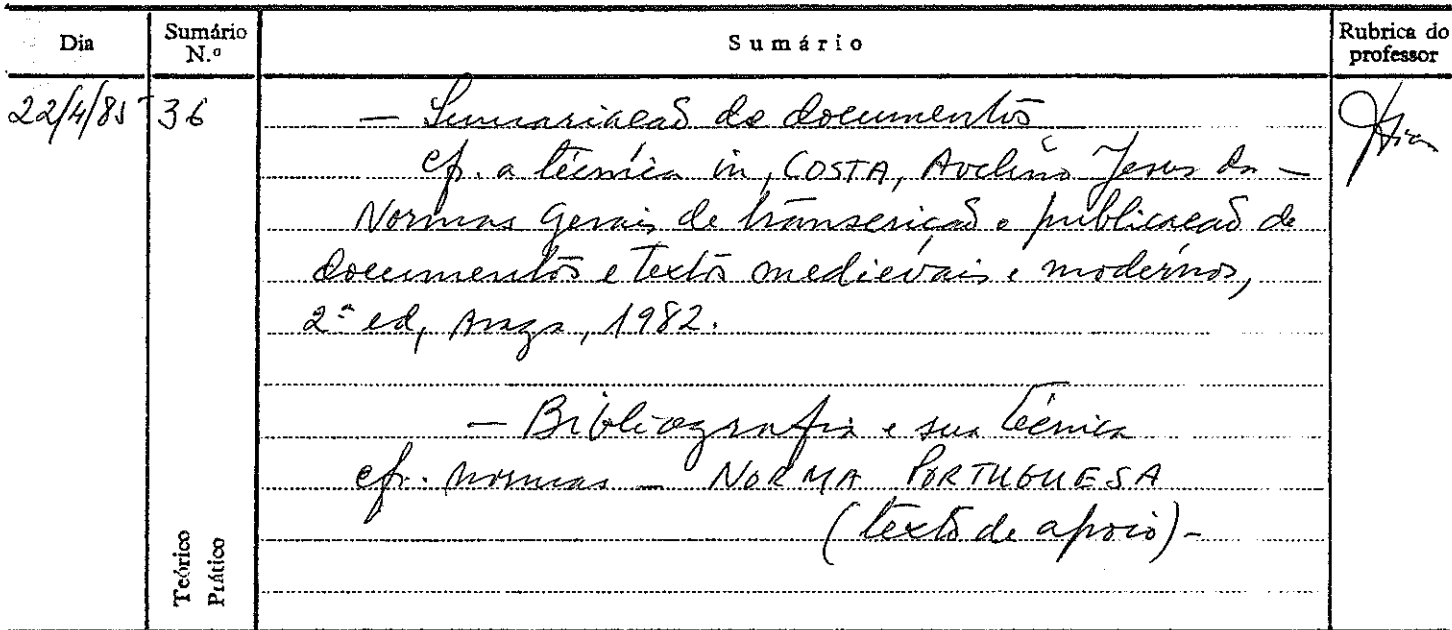 Dia
Sumário
N.º
Sumário
Rubrica do
professor
22/4/85
36
— Sumariação de documentos
cf. a técnica in, COSTA, Avelino Jesus da —
Normas Gerais de transcrição e publicação de
documentos e textos medievais e modernos,
2ª ed, Braga, 1982.
— Bibliografia e sua técnica
cfr. normas — NORMA PORTUGUESA
(texto de apoio) -
Teórico
Prático